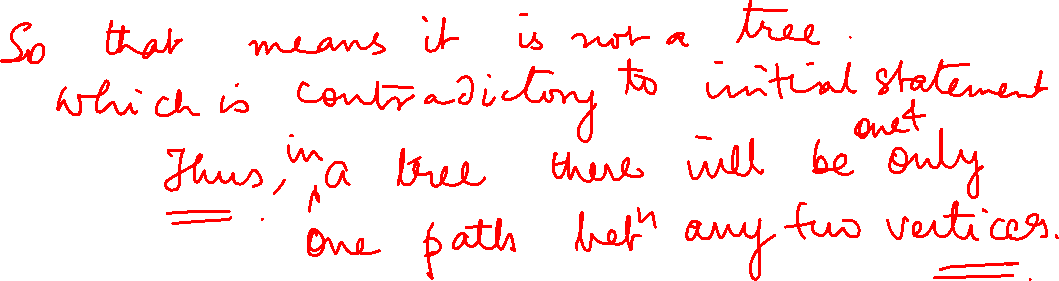 So that means it is not a tree.
which is contradictory to initial statement
Thus, in a tree there will be one & only
one path betn any two vertices.